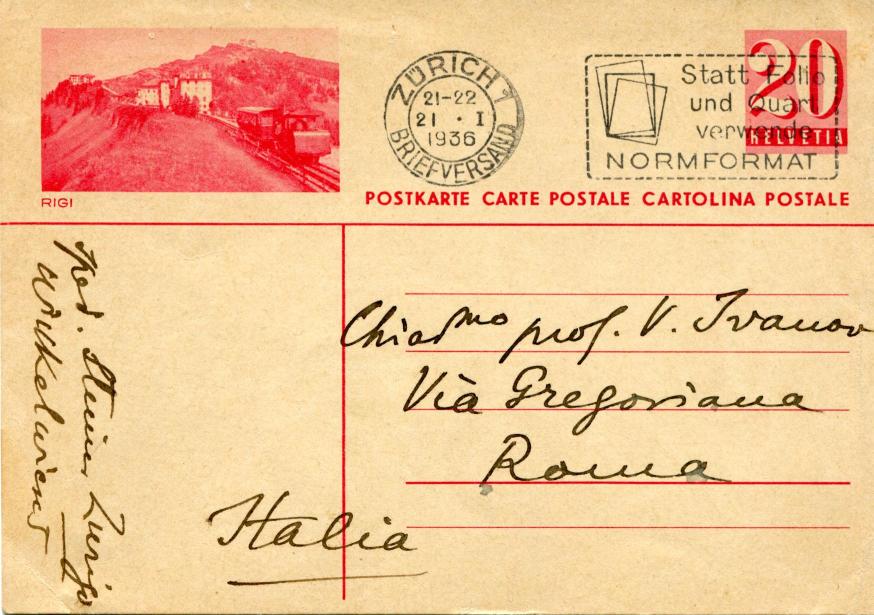 RIGI
ZÜRICH 1
21-22
21 · I
1936
BRIEFVERSAND
Statt Folio
und Quart
verwende
NORMFORMAT
20
HELVETIA
POSTKARTE CARTE POSTALE CARTOLINA POSTALE
Chiarmo prof. V. Ivanov
Via Gregoriana
Roma
Italia
Sped. Steiner Zurigo
Winkelwiese 5